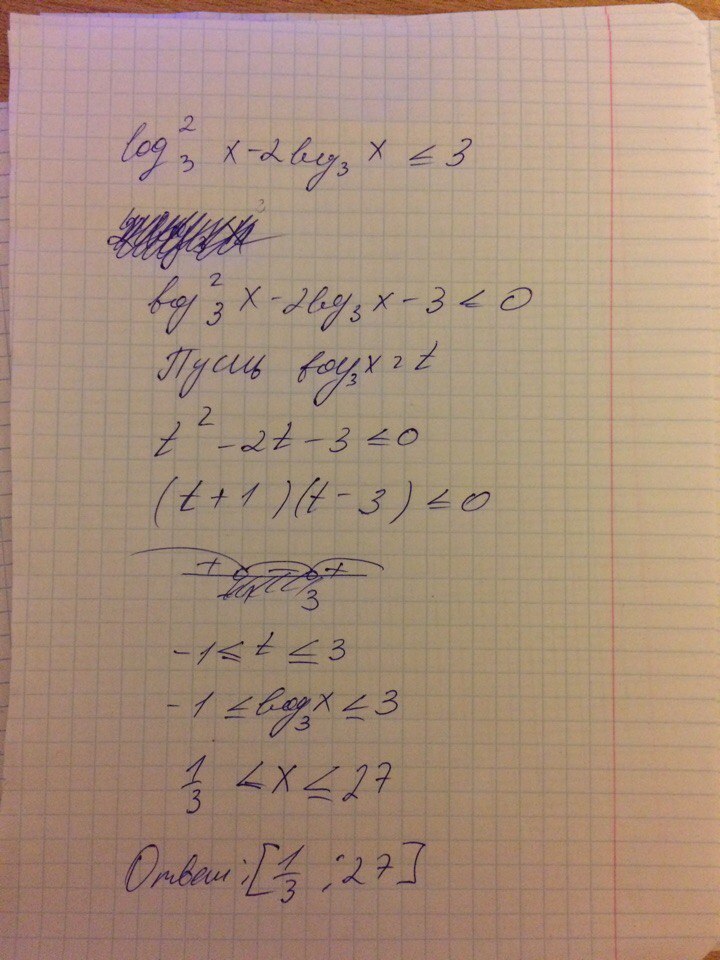 log₃² x - 2log₃ x ≤ 3
log₃² x - 2log₃ x - 3 ≤ 0
Пусть log₃x = t
t² - 2t - 3 ≤ 0
(t + 1)(t - 3) ≤ 0
+ - +
3
-1 ≤ t ≤ 3
-1 ≤ log₃x ≤ 3
1/3 ≤ x ≤ 27
Ответ: [1/3 ; 27]